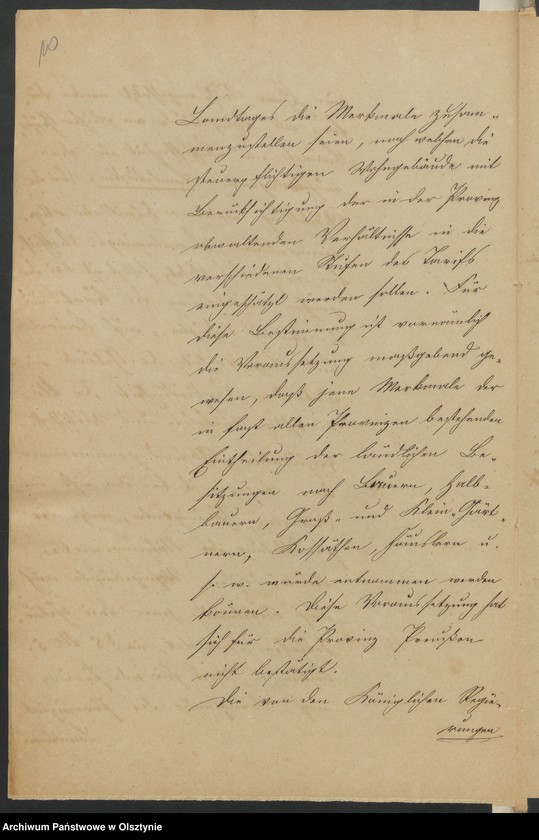 10
Landtages die Merkmale zusam-
menzustellen seien, nach welchen die
steuerpflichtigen Wohngebäude mit
Berücksichtigung der in der Provinz
obwaltenden Verhältnisse in die
verschiedenen Stufen des Tarifs
eingeschätzt werden sollen. Für
diese Bestimmung ist vornämlich
die Voraussetzung maßgebend ge-
wesen, daß jene Merkmale der
in fast allen Provinzen bestehenden
Eintheilung der ländlichen Be-
sitzungen nach Bauern, Halb-
bauern, Groß- und Klein-Gärt-
nern, Kossäthen, Häuslern u.
s. w. würde entnommen werden
können. Diese Voraussetzung hat
sich für die Provinz Preußen
nicht bestätigt.
Die von den Königlichen Regie-
rungen
Archiwum Państwowe w Olsztynie